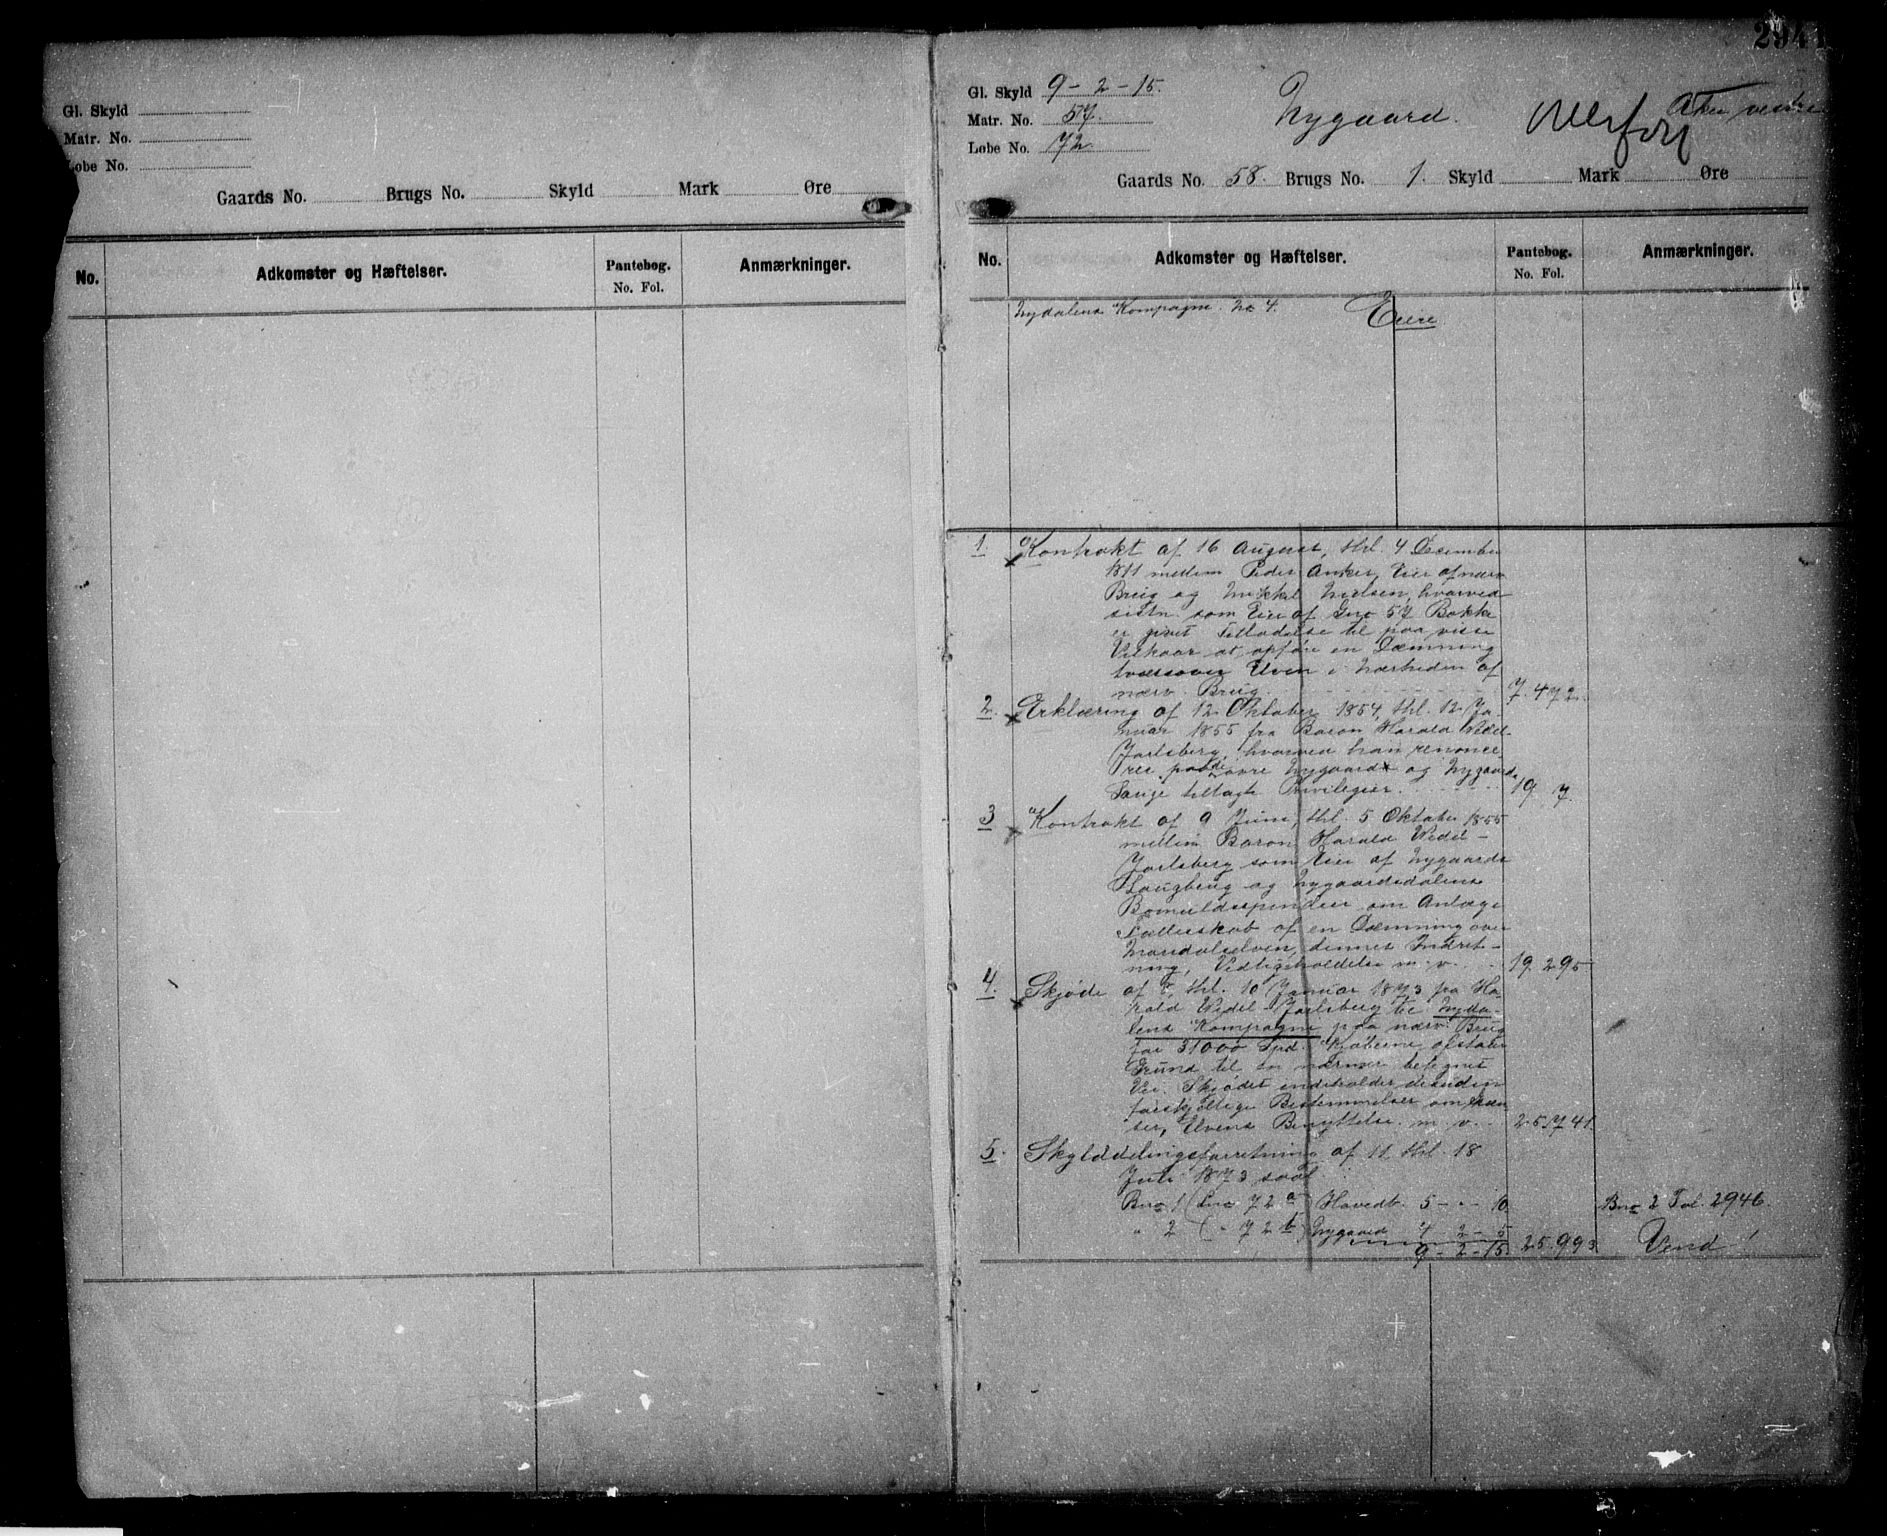 Gl. Skyld
Matr. No.
Løbe No.
Gaards No. Brugs No. Skyld Mark Øre
No. Adkomster og Hæftelser. Pantebog. No. Fol. Anmærkninger.
2941
Gl. Skyld 9-2-15.
Matr. No. 57.
Løbe No. 72.
Nygaard.
Aker vestre
Gaards No. 58. Brugs No. 1. Skyld Mark Øre
No. Adkomster og Hæftelser. Pantebog. No. Fol. Anmærkninger.
Nydalens Kompagni. No 4. Eiere
1. Kontrakt af 16 August, thl. 4 December
1811 mellem Peder Anker, Eier af nærv.
Brug og Nielsen, hvorved
sidstn som Eier af Gno 57 Bakke
er givet Tilladelse til paa visse
Vilkaar at opføre en Dæmning
tværsover Elven i Nærheden af
nærv. Brug. 7. 472.
2. Erklæring af 12 Oktober 1854, thl. 12 Ja-
nuar 1855 fra Baron Harald Wedel-
Jarlsberg, hvorved han renonce
rer paa de øvre Nygaard og Nygaards
Sauge tillagte Privilegier. 19 7.
3 Kontrakt af 9 Juni, thl. 5 Oktober 1855
mellem Baron Harald Wedel-
Jarlsberg som Eier af Nygaards
Saugbrug og Nygaardsdalens
Bomuldsspinderi om Anlæg i
Fællesskab af en Dæmning over
Maridalselven, dennes Indret-
ning, Vedligeholdelse m. v. 19. 295
4. Skjøde af 8, thl. 10 Januar 1873 fra Ha-
rald Wedel-Jarlsberg til Nyda-
lens Kompagni paa nærv. Brug
for 31000 Spd. Kjøberne afstaar
Grund til en nærmere betegnet
Vei. Skjødet indeholder desuden
forskjellige Bestemmelser om Græn-
ser, Elvens Benyttelse m. v. 25. 741.
5. Skylddelingsforretning af 11 thl. 18
Juli 1873 saal.
Bno 1 (Lno 72 a) Hovedb. 5 - - 10. Bno 2 Fol. 2946.
" 2 ( " 72 b) Nygaard 4 2 - 5
9 - 2 - 15. 25. 993 Vend!